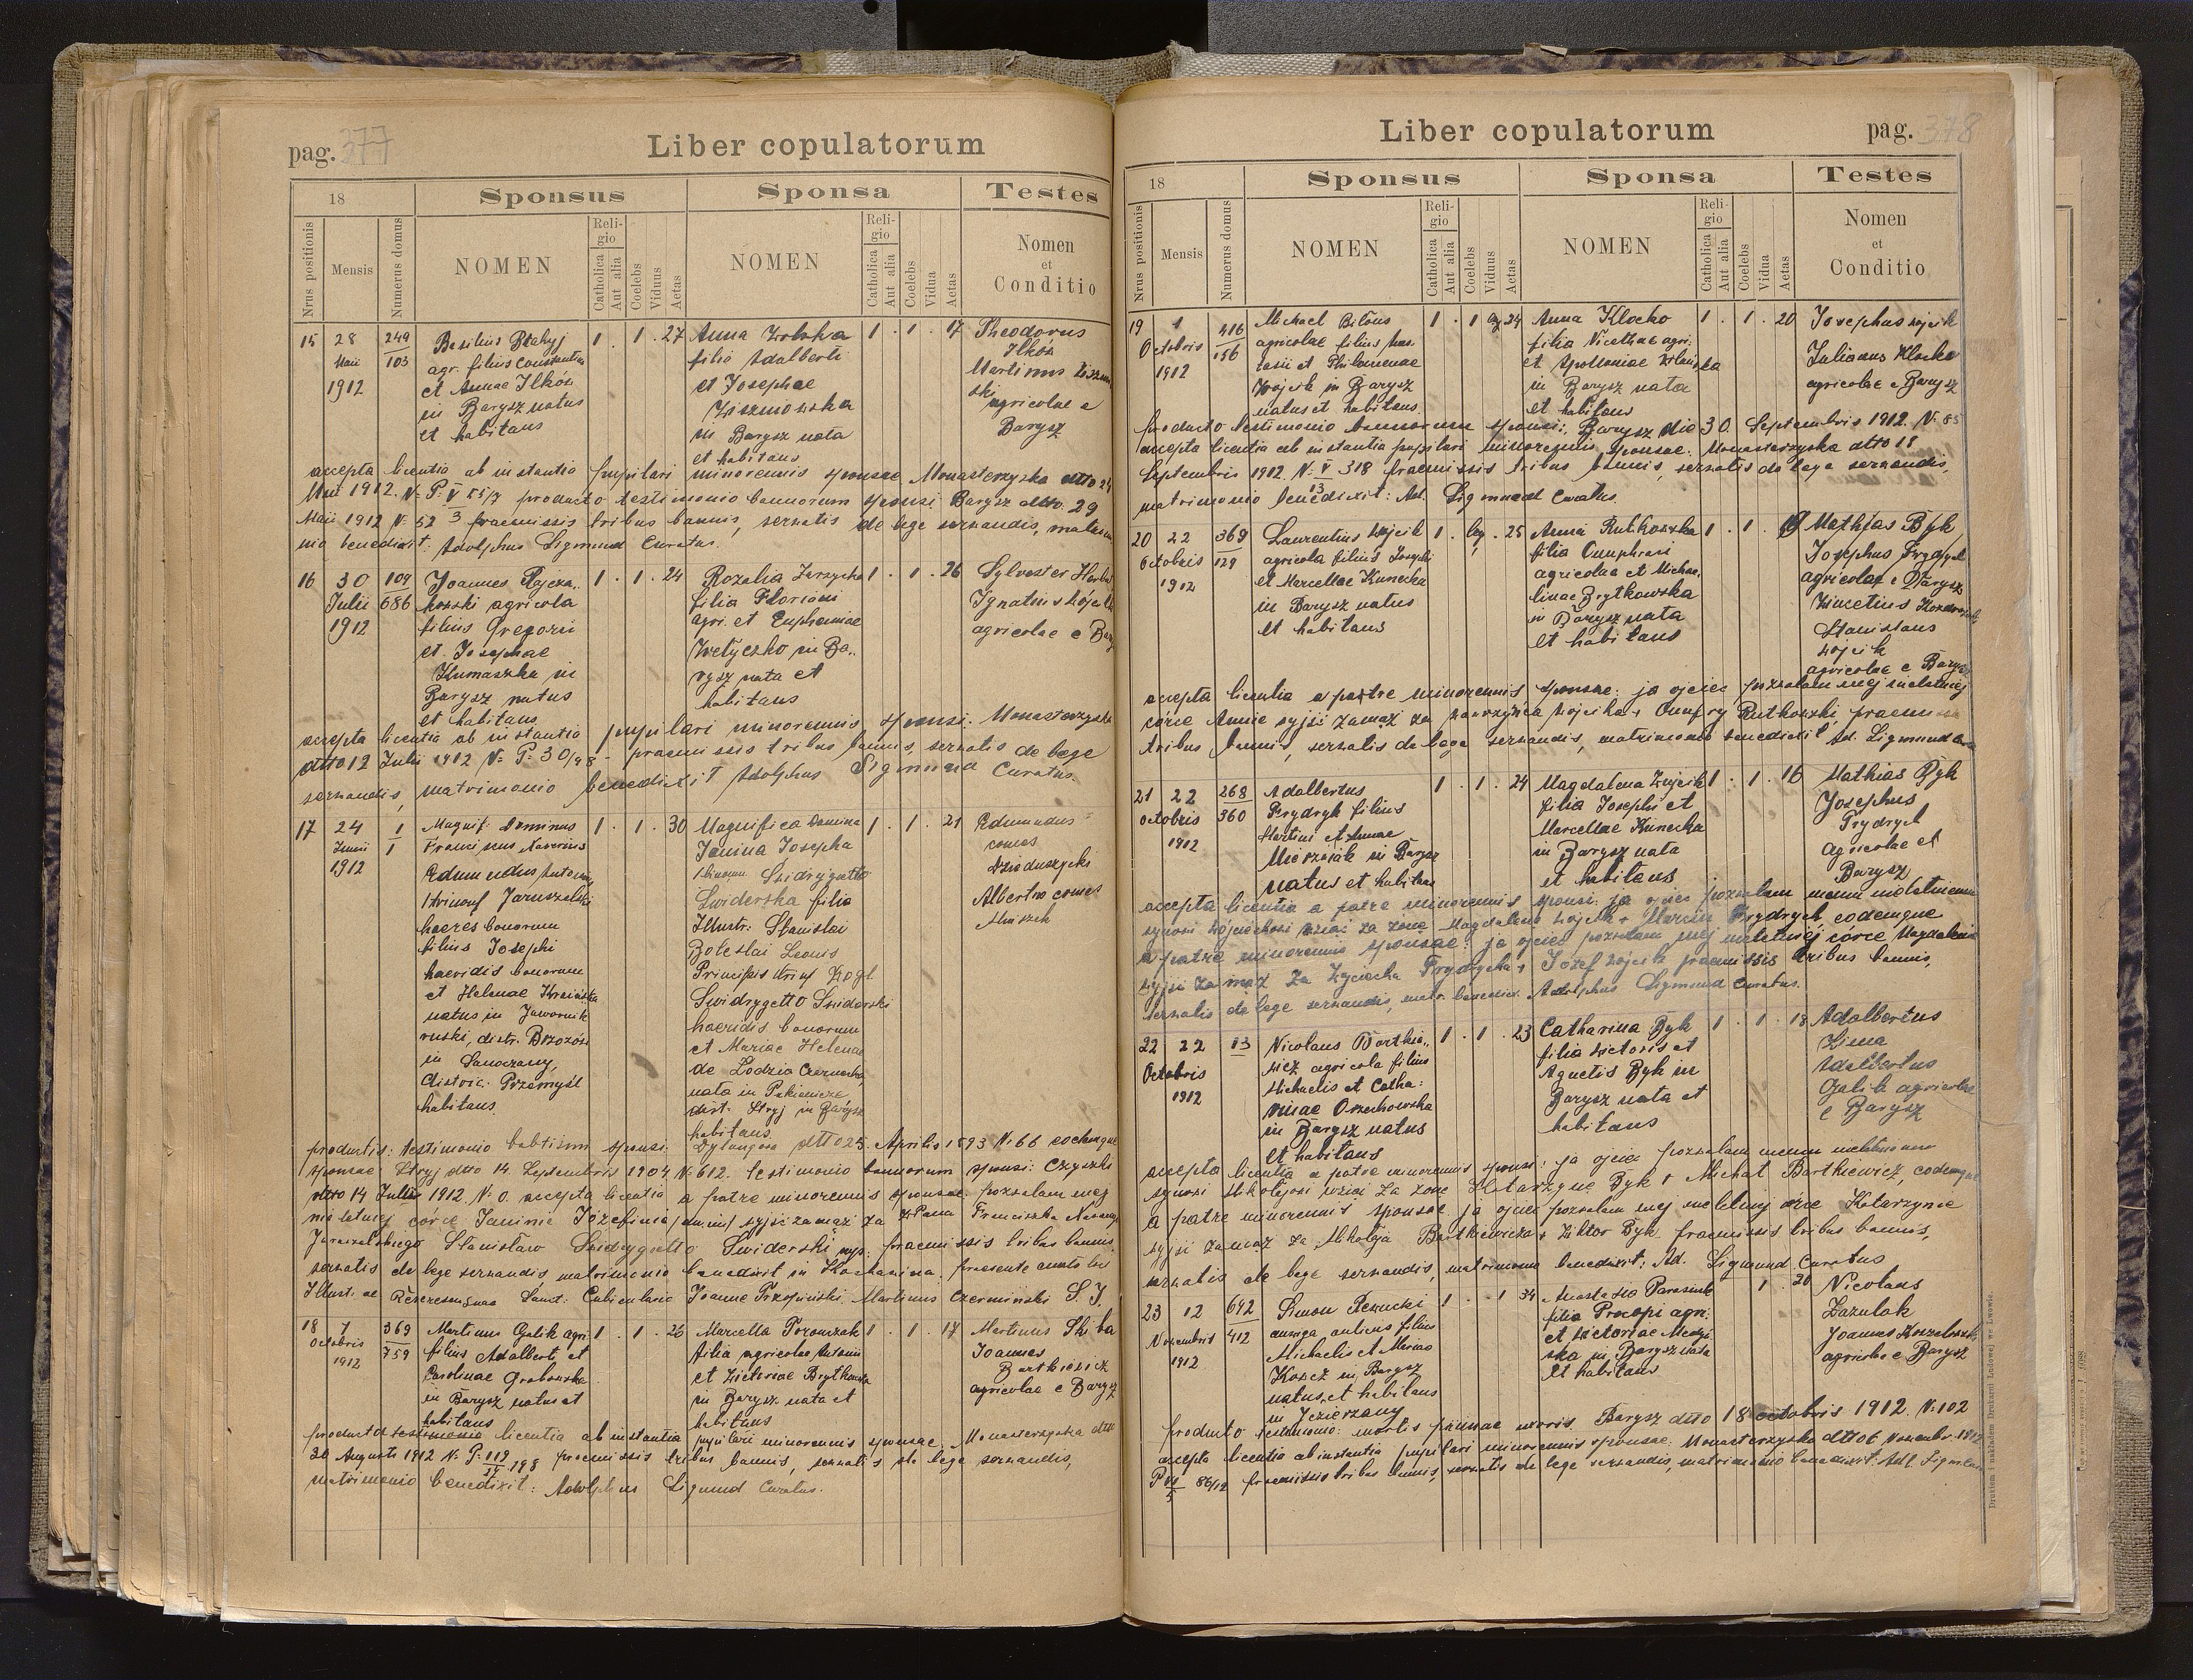 pag. 377
Liber copulatorum
18
Sponsus
Sponsa
Testes
Nrus positionis
Mensis
Numerus domus
NOMEN
Religio
Catholica
Aut alia
Coelebs
Viduus
Aetas
NOMEN
Religio
Catholica
Aut alia
Coelebs
Vidua
Aetas
Nomen
et
Conditio
15
28
Maii
1912
249
103
Basilius
agr. filius Constantini
et Annae Ilków
in Barysz natus
et habitans
1 . 1 . 27
Anna
filia Adalberti
et Josephae
Wiszniowska
in Barysz nata
et habitans
1 . 1 . 17
Theodorus
Ilków
Martinus
ski
agricolae e
Barysz
accepta licentia ab instantia pupilari minorennis sponsae Monasterzyska dtto 24
Maii 1912 N: P: V producto testimonio bannorum sponsi Barysz dtto 29
Maii 1912 N: 52 praemissis tribus bannis, servatis de lege servandis, matrimo
nio benedixit: Adolphus Sigmund Curatus.
16
30
Julii
1912
109
686
Joannes
kowski agricola
filius Gregorii
et Josephae
Klimaszka in
Barysz natus
et habitans
1 . 1 . 24
Rozalia Zarzycka
filia Floriani
agri. et Euphemiae
Wetyczko in Ba„
rysz nata et
habitans
1 . 1 . 26
Sylvester
Ignatius Wójcik
agricolae e
accepta licentia ab instantia pupilari minorennis sponsi: Monasterzyska
dtto 12 Julii 1912 N: P: 30/98 - praemissis tribus bannis, servatis de lege
servandis, matrimonio benedixit Adolphus Sigmund Curatus.
17
24
Junii
1912
1
1
Magnif. Dominus
Franciscus Xaverius
Edmundus Antonius
/trinom/ Jaruzelski
haeres bonorum
filius Josephi
haeridis bonorum
et Helenae Kraińska
natus in Jawornik
ruski, distr. Brzozów
in Sanoczany,
distric: Przemyśl
habitans
1 . 1 . 30
Magnifica Domina
Janina Josepha
/binom. Świdrygełło
Świderska filia
Illustr: Stanislai
Boleslai Leonis
Principis
Świdrygełło Świderski
haeridis bonorum
et Mariae Helenae
de Łodzia Czarnecka
nata in Pukienicze
distr. Stryj in Barysz
habitans
1 . 1 . 21
Edmundus
comes
Dzieduszycki
Albertus comes
Mniszek
productis: testimonio babtism. sponsi: Dylongowa dtto 25. Aprilis 1893 N: 66 eodemque
sponsae Stryj dtto 14 Septembris 1904 N: 612. testimonio bannorum sponsi: Czyszki
dtto 14 Julii 1912 N: 0. accepta licentia a patre minorennis sponsae pozwalam mej
nieletniej córce Janinie Józefinie wyjść zamąż za WPana Franciszka
Jaruzelskiego Stanisław Świdrygełło Świderski mp: praemissis tribus bannis,
servatis de lege servandis matrimonio benedixit in praesente
Illust. ac Reverendissimo Sanct: Cubiculario Joanne Martinus Czermiński S. J.
18
7
Octobris
1912
369
759
Martinus Galik agri.
filius Adalberti et
Carolinae Grabowska
in Barysz natus et
habitans
1 . 1 . 26
Marcella
filia agricolae Antonii
et Victoriae Brytkowska
in Barysz nata et
habitans
1 . 1 . 17
Martinus Skiba
Joannes
Bartkiewicz
agricolae e Barysz
producto testimonio licentia ab instantia pupilari minorennis sponsae: Monasterzyska dtto
30 Augusti 1912 N: P: 198 praemissis tribus bannis, servatis de lege servandis,
matrimonio benedixit: Adolphus Sigmund Curatus.
Liber copulatorum
pag. 378
18
Sponsus
Sponsa
Testes
Nrus positionis
Mensis
Numerus domus
NOMEN
Religio
Catholica
Aut alia
Coelebs
Viduus
Aetas
NOMEN
Religio
Catholica
Aut alia
Coelebs
Vidua
Aetas
Nomen
et
Conditio
19
1
Octobris
1912
416
156
Michael Bilous
agricolae filius
tasii et Philomenae
Wojcik in Barysz
natus et habitans
1 . 1 24
Anna Klocko
filia Nicethae agri.
et Apolloniae
in Barysz nata
et habitans
1 . 1 . 20
Josephus Wojcik
Julianus Klocko
agricolae e Barysz
producto testimonio bannorum sponsi: Barysz dtto 30. Septembris 1912. N: 85
accepta licentia ab instantia pupilari minorennis sponsae: Monasterzyska dtto 18
Septembris 1912. N: V 318 praemissis tribus bannis, servatis de lege servandis,
13
matrimonio benedixit: Ad. Sigmund Curatus.
20
22
Octobris
1912
369
129
Laurentius Wojcik
agricola filius Josephi
et Marcellae Kunecka
in Barysz natus
et habitans
1 . . 25
Anna Rutkowska
filia Onuphrii
agricolae et Michae„
linae Brytkowska
in Barysz nata
et habitans
1 . 1 . 19
Mathias Byk
Josephus Frydryk
agricolae e Barysz
Vincetius
Stanislaus
Wojcik
agricolae e Barysz
accepta licentia a patre minorennis sponsae: ja ojciec pozwalam mej nieletniej
córce Annie wyjść zamąż za Wawrzyńca Wojcika + Onufry Rutkowski, praemissis
tribus bannis, servatis de lege servandis, matrimonio benedixit Ad. Sigmund
21
22
Octobris
1912
268
360
Adalbertus
Frydryk filius
Martini et Annae
in Barysz
natus et habitans
1 . 1 . 24
Magdalena Wojcik
filia Josephi et
Marcellae Kunecka
in Barysz nata
et habitans
1 . 1 . 16
Mathias Byk
Josephus
Frydryk
agricolae et
Barysz
accepta licentia a patre minorennis sponsi: ja ojciec pozwalam memu nieletniemu
synowi Wojciechowi wziąć za żonę Magdalenę Wojcik + Marcin Frydryck, eodemque
a patre minorennis sponsae: ja ojciec pozwalam mej nieletniej córce Magdalenie
wyjść za mąż za Wojciecha Frydrycka + Józef Wojcik praemissis tribus bannis,
servatis de lege servandis, matr. benedixit. Adolphus Sigmund Curatus.
22
22
Octobris
1912
13
Nicolaus Bartkie„
wicz agricola filius
Michaelis et Catha:
rinae Orzechowska
in Barysz natus
et habitans
1 . 1 . 23
Catharina Byk
filia Victoris et
Agnetis Byk in
Barysz nata et
habitans
1 . 1 . 18
Adalbertus
Zima
Adalbertus
Galik agricolae
e Barysz
accepta licentia a patre minorennis sponsi: ja ojciec pozwalam memu nieletniemu
synowi Mikołajowi wziąć za żonę Katarzynę Byk + Michał Bartkiewicz, eodemque
a patre minorennis sponsae ja ojciec pozwalam mej nieletniej córce Katarzynie
wyjść zamąż za Mikołaja Bartkiewicza + Wiktor Byk. praemissis tribus bannis,
servatis de lege servandis, matrimonio benedixit: Ad. Sigmund Curatus
23
12
Novembris
1912
642
412
Simon
auriga aulicus filius
Michaelis et Mariae
in Barysz
natus et habitans
in Jezierzany
1 . 1 34
Anastasia
filia Procopi agri.
et Victoriae
ska in Barysz nata
et habitans
1 . 20
Nicolaus
Zazulak
Joannes
agricolae e Barysz
producto testimonio: mortis primae uxoris. Barysz dtto 18 octobris 1912. N: 102
accepta licentia ab instantia pupilari minorennis sponsae: Monasterzyska dtto 6 Novembr. 1912
P 86/12 praemissis tribus bannis, servatis de lege servandis, matrimonio benedixit: Adl. Sigmund
Drukiem i nakładem Drukarni Ludowej we Lwowie.